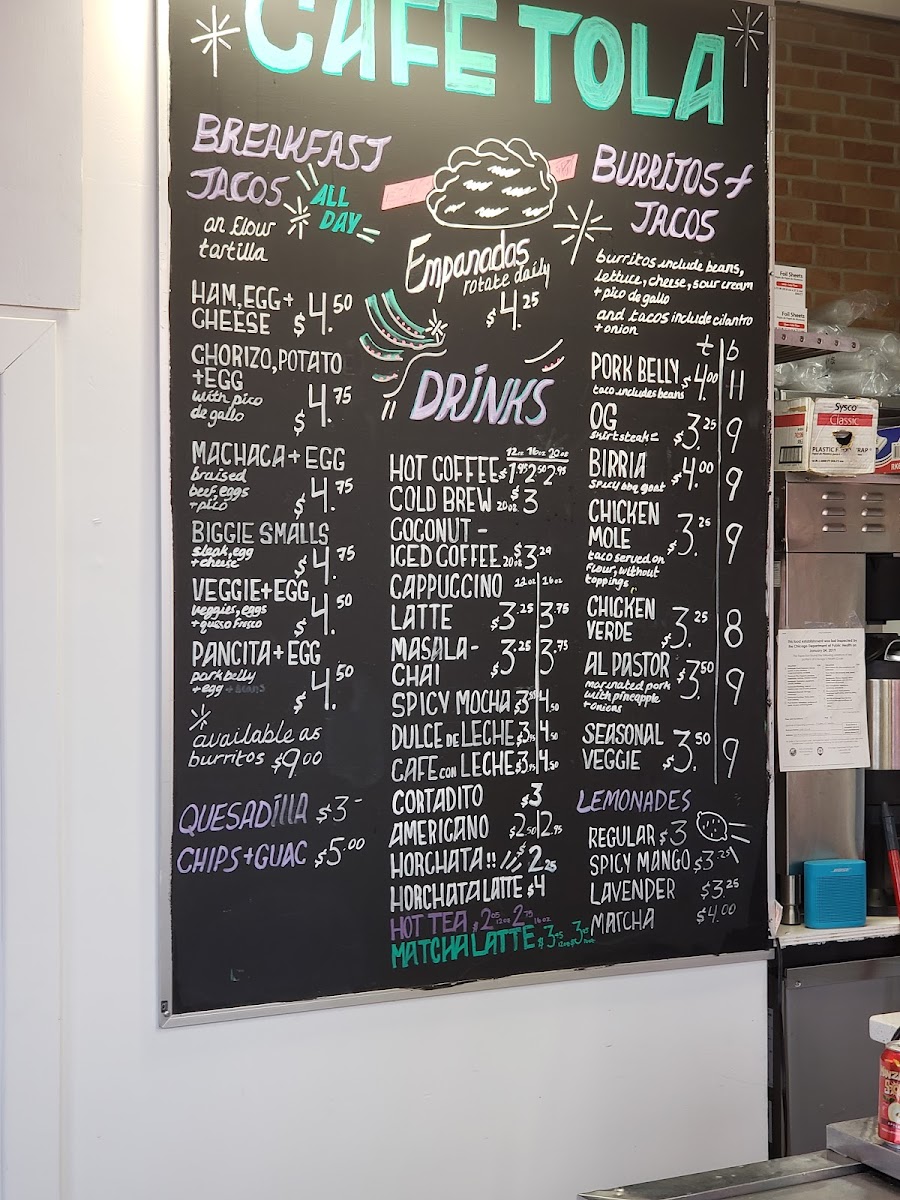 CAFE TOLA
BREAKFAST
TACOS
ALL
DAY
on flour
tortilla
HAM, EGG +
CHEESE $4.50
CHORIZO, POTATO
+ EGG
with pico
de gallo
$4.75
MACHACA + EGG
braised
beef, eggs
+ pico
$4.75
BIGGIE SMALLS
steak, egg
+ cheese
$4.75
VEGGIE + EGG
veggies, eggs
+ queso fresco
$4.50
PANCITA + EGG
pork belly
+ egg + beans
$4.50
available as
burritos $9.00
QUESADILLA $3-
CHIPS + GUAC $5.00
Empanadas
rotate daily
$4.25
DRINKS
12oz 16oz 20oz
HOT COFFEE $1.95 2.50 2.95
COLD BREW 20oz $3
COCONUT -
ICED COFFEE 20oz $3.29
CAPPUCCINO 12oz | 16oz
LATTE $3.25 | 3.75
MASALA -
CHAI $3.25 | 3.75
SPICY MOCHA $3.75 | 4.50
DULCE DE LECHE $3.75 | 4.50
CAFE con LECHE $3.75 | 4.50
CORTADITO $3
AMERICANO $2.50 | 2.75
HORCHATA!! $2.25
HORCHATA LATTE $4
HOT TEA $2.05 12oz 2.75 16oz
MATCHA LATTE $3.45
BURRITOS +
TACOS
burritos include beans,
lettuce, cheese, sour cream
+ pico de gallo
and tacos include cilantro
+ onion
t | b
PORK BELLY $4.00 | 11
taco includes beans
OG $3.25 | 9
skirt steak
BIRRIA $4.00 | 9
spicy bbq goat
CHICKEN
MOLE $3.25 | 9
taco served on
flour, without
toppings
CHICKEN
VERDE $3.25 | 8
AL PASTOR $3.50 | 9
marinated pork
with pineapple
+ onions
SEASONAL
VEGGIE $3.50 | 9
LEMONADES
REGULAR $3
SPICY MANGO $3.25
LAVENDER $3.25
MATCHA $4.00
Foil Sheets
Foil Sheets
Sysco
Classic
PLASTIC
BOSE